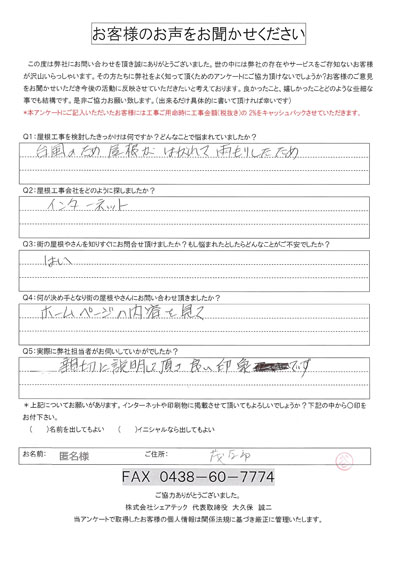 お客様のお声をお聞かせください
この度は弊社にお問い合わせを頂き誠にありがとうございました。世の中には弊社の存在やサービスをご存知ないお客様
が沢山いらっしゃいます。その方たちに弊社をよく知って頂くためのアンケートにご協力頂けないでしょうか？お客様のご意見
をお聞かせいただき今後の活動に反映させていただきたいと考えております。良かったこと、嬉しかったことどのような些細な
事でも結構です。是非ご協力お願い致します。（出来るだけ具体的に書いて頂ければ幸いです）
*本アンケートにご記入いただいたお客様には工事ご用命時に工事金額(税抜き)の2%をキャッシュバックさせていただきます。
Q1：屋根工事を検討したきっかけは何ですか？どんなことで悩まれていましたか？
台風のため 屋根が はがれて 雨もりしたため
Q2：屋根工事会社をどのように探しましたか？
インターネット
Q3：街の屋根やさんを知りすぐにお問合せ頂けましたか？もし悩まれたとしたらどんなことがご不安でしたか？
はい
Q4：何が決め手となり街の屋根やさんにお問い合わせ頂きましたか？
ホームページの内容を見て
Q5：実際に弊社担当者がお伺いしていかがでしたか？
親切に説明して頂き良い印象です
*上記についてお願いがあります。インターネットや印刷物に掲載させて頂いてもよろしいでしょうか？下記の中から〇印を
お付下さい。
（　）名前を出してもよい　（　）イニシャルなら出してもよい
お名前： 匿名様 ご住所：
FAX 0438-60-7774
ご協力ありがとうございました。
株式会社シェアテック 代表取締役 大久保 誠二
当アンケートで取得したお客様の個人情報は関係法規に基づき厳正に管理いたします。